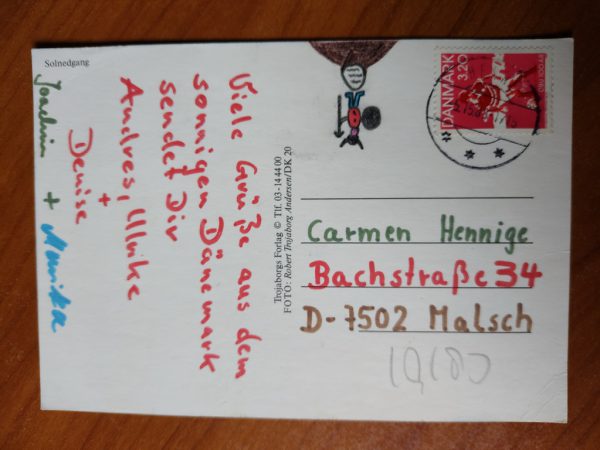 Solnedgang
Viele Grüße aus dem
sonnigen Dänemark
sendet Dir
Andres, Ulrike
+
Denise
Joachim + Monika
Trojaborgs Forlag © Tlf. 03-14 44 00
FOTO: Robert Trojaborg Andersen/DK 20
DANMARK
3.20
Carmen Hennige
Bachstraße 34
D-7502 Malsch